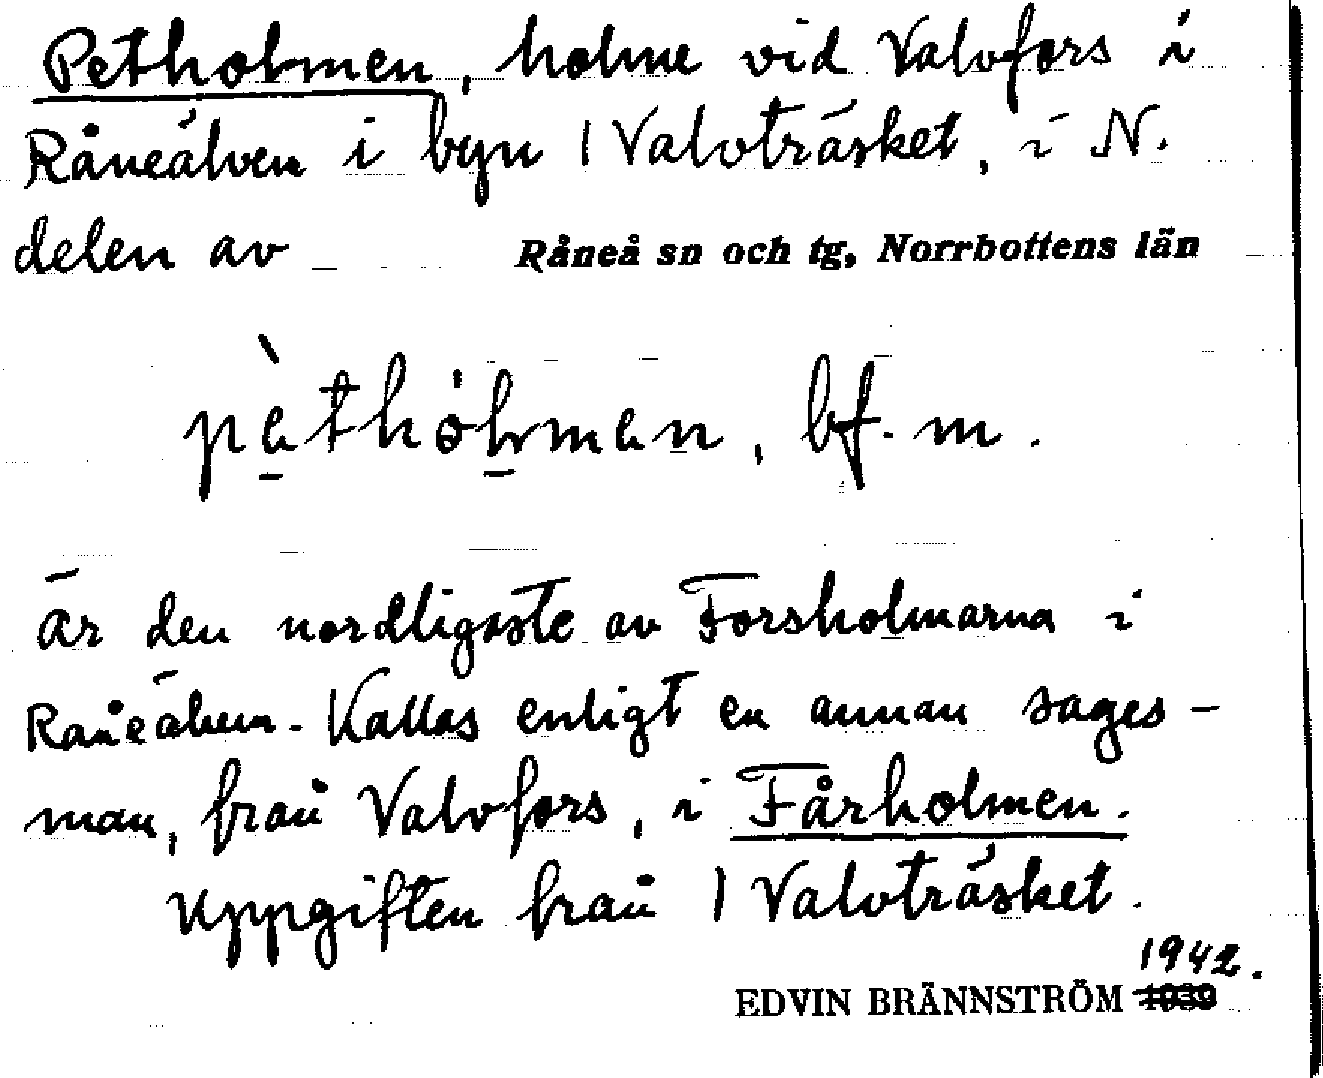 Petholmen, holme vid Valvfors i
Råneälven i byn | Valvträsket, i N.
delen av Råneå sn och tg, Norrbottens län
pèthólmen, bf. m.
Är den nordligaste av Forsholmarna i
Råneälven. Kallas enligt en annan sages-
man, från Valvfors, i Fårholmen.
Uppgiften från | Valvträsket.
1942.
EDVIN BRÄNNSTRÖM 1939